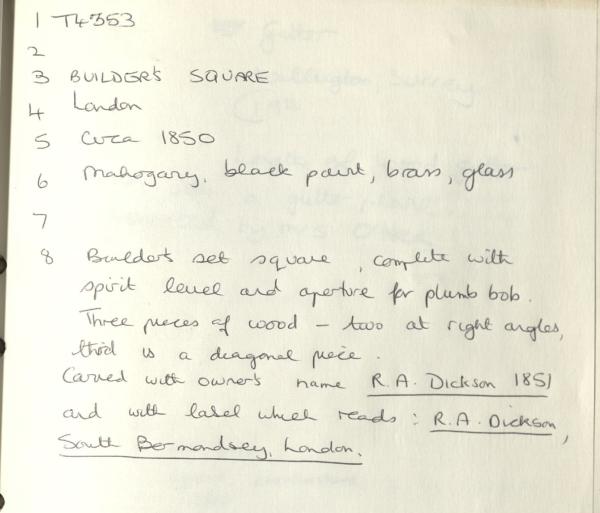 1 T4353
2
3 BUILDER'S SQUARE
4 London
5 Circa 1850
6 Mahogany, black paint, brass, glass
7
8 Builder's set square, complete with
spirit level and aperture for plumb bob.
Three pieces of wood – two at right angles,
third is a diagonal piece.
Carved with owner's name R.A. Dickson 1851
and with label which reads: R.A. Dickson,
South Bermondsey, London.